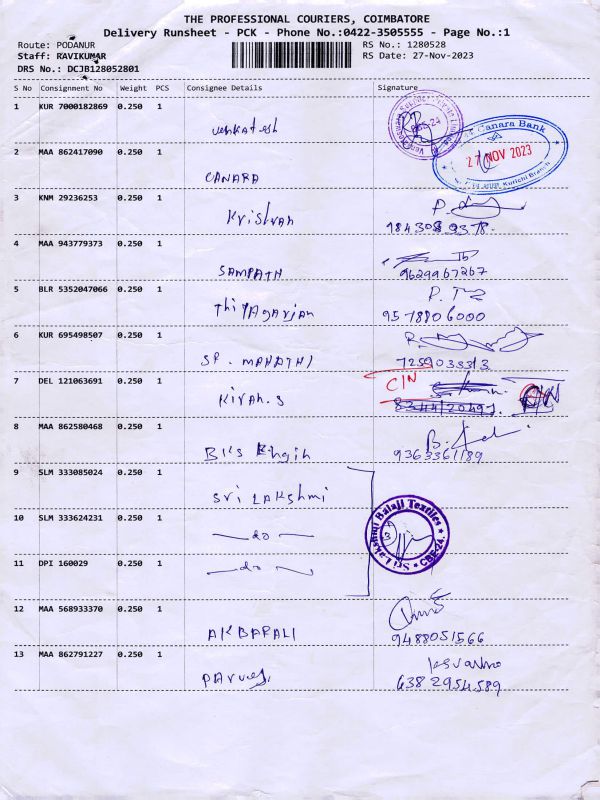 THE PROFESSIONAL COURIERS, COIMBATORE
Delivery Runsheet - PCK - Phone No.:0422-3505555 - Page No.:1
Route: PODANUR RS No.: 1280528
Staff: RAVIKUMAR RS Date: 27-Nov-2023
DRS No.: DCJB128052801
S No Consignment No Weight PCS Consignee Details Signature
1 KUR 7000182869 0.250 1
Venkatesh
Canara Bank
27 NOV 2023
Kurichi Branch
2 MAA 862417090 0.250 1
CANARA
3 KNM 29236253 0.250 1
Krishnan
4 MAA 943779373 0.250 1
SAMPATH
9629967267
5 BLR 5352047066 0.250 1
Thiyagarjan
9578806000
6 KUR 695498507 0.250 1
SP. MAHATHI
7259033313
7 DEL 121063691 0.250 1
C/N
Kiran.S
8 MAA 862580468 0.250 1
BKS Engin
9363361189
9 SLM 333085024 0.250 1
Sri LAKshmi
10 SLM 333624231 0.250 1
do
Sri Lakshmi Balaji Textiles
CBE-24.
11 DPI 160029 0.250 1
do
12 MAA 568933370 0.250 1
AKBARALI
9488051566
13 MAA 862791227 0.250 1
6382954589